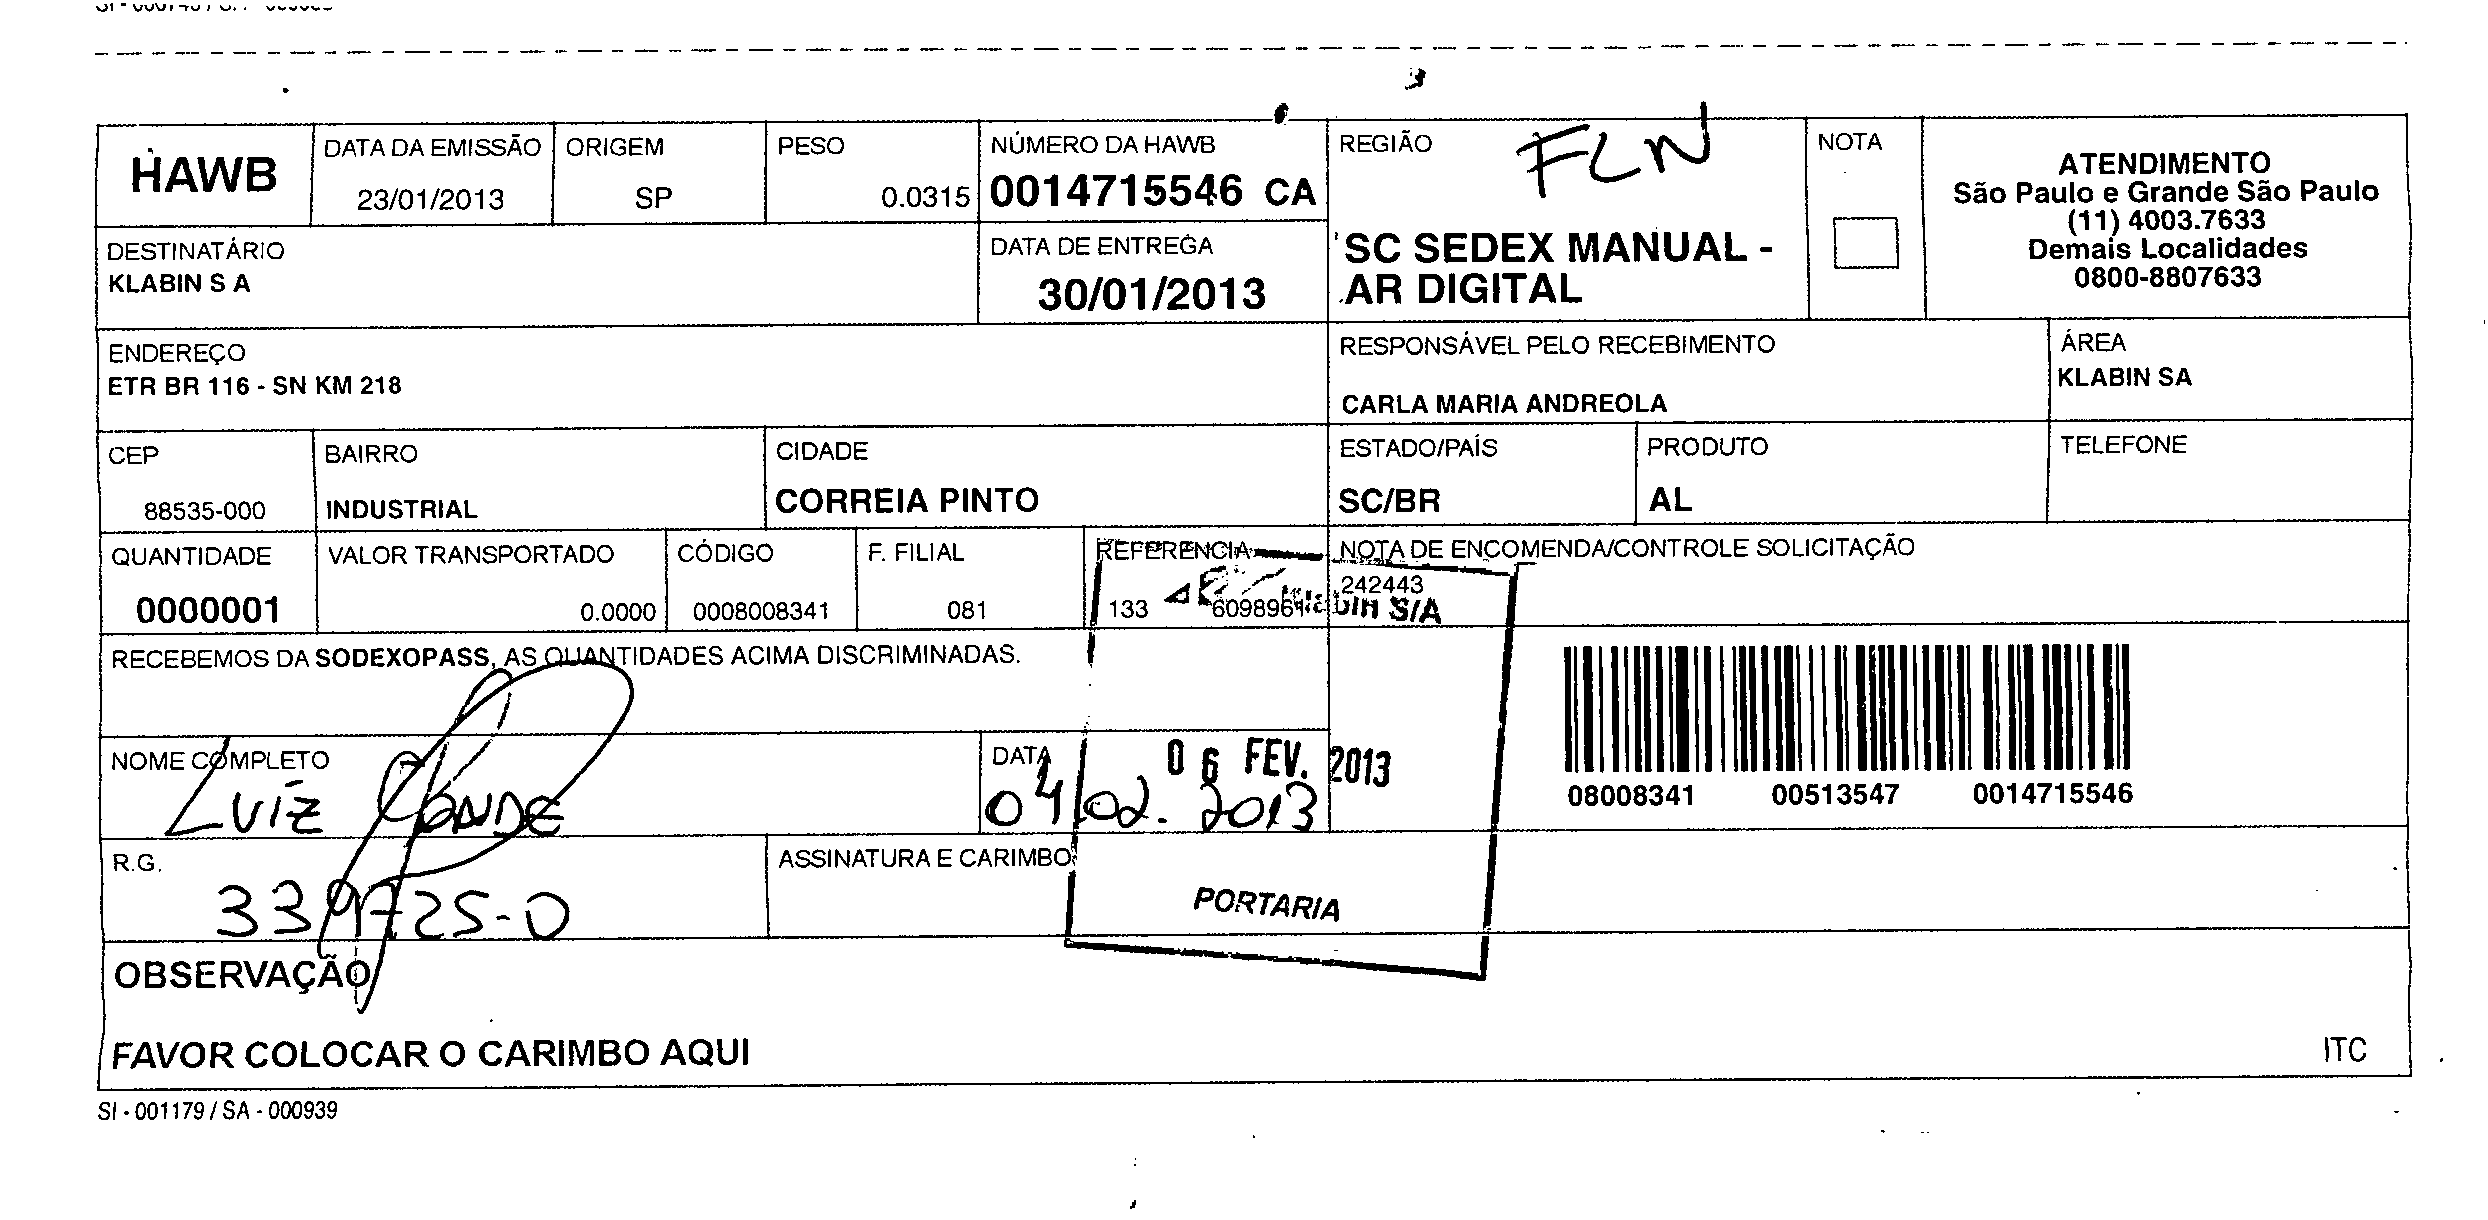 HAWB
DATA DA EMISSÃO
23/01/2013
ORIGEM
SP
PESO
0.0315
NÚMERO DA HAWB
0014715546 CA
REGIÃO
FLN
SC SEDEX MANUAL -
AR DIGITAL
NOTA
ATENDIMENTO
São Paulo e Grande São Paulo
(11) 4003.7633
Demais Localidades
0800-8807633
DESTINATÁRIO
KLABIN S A
DATA DE ENTREGA
30/01/2013
ENDEREÇO
ETR BR 116 - SN KM 218
RESPONSÁVEL PELO RECEBIMENTO
CARLA MARIA ANDREOLA
ÁREA
KLABIN SA
CEP
88535-000
BAIRRO
INDUSTRIAL
CIDADE
CORREIA PINTO
ESTADO/PAÍS
SC/BR
PRODUTO
AL
TELEFONE
QUANTIDADE
0000001
VALOR TRANSPORTADO
0.0000
CÓDIGO
0008008341
F. FILIAL
081
REFERENCIA
133
NOTA DE ENCOMENDA/CONTROLE SOLICITAÇÃO
242443
S/A
RECEBEMOS DA SODEXOPASS, AS QUANTIDADES ACIMA DISCRIMINADAS.
08008341 00513547 0014715546
NOME COMPLETO
LUIZ
DATA
06 FEV. 2013
04/02.2013
R.G.
339725-0
ASSINATURA E CARIMBO
PORTARIA
OBSERVAÇÃO
FAVOR COLOCAR O CARIMBO AQUI
ITC
SI - 001179 / SA - 000939